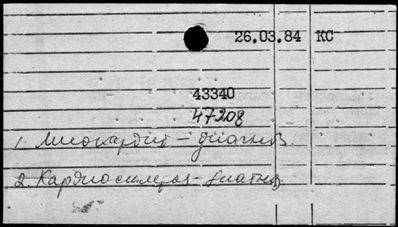 26.03.84 КС
43340
47208
1. Миокардит – диагноз.
2. Кардиосклероз – диагноз